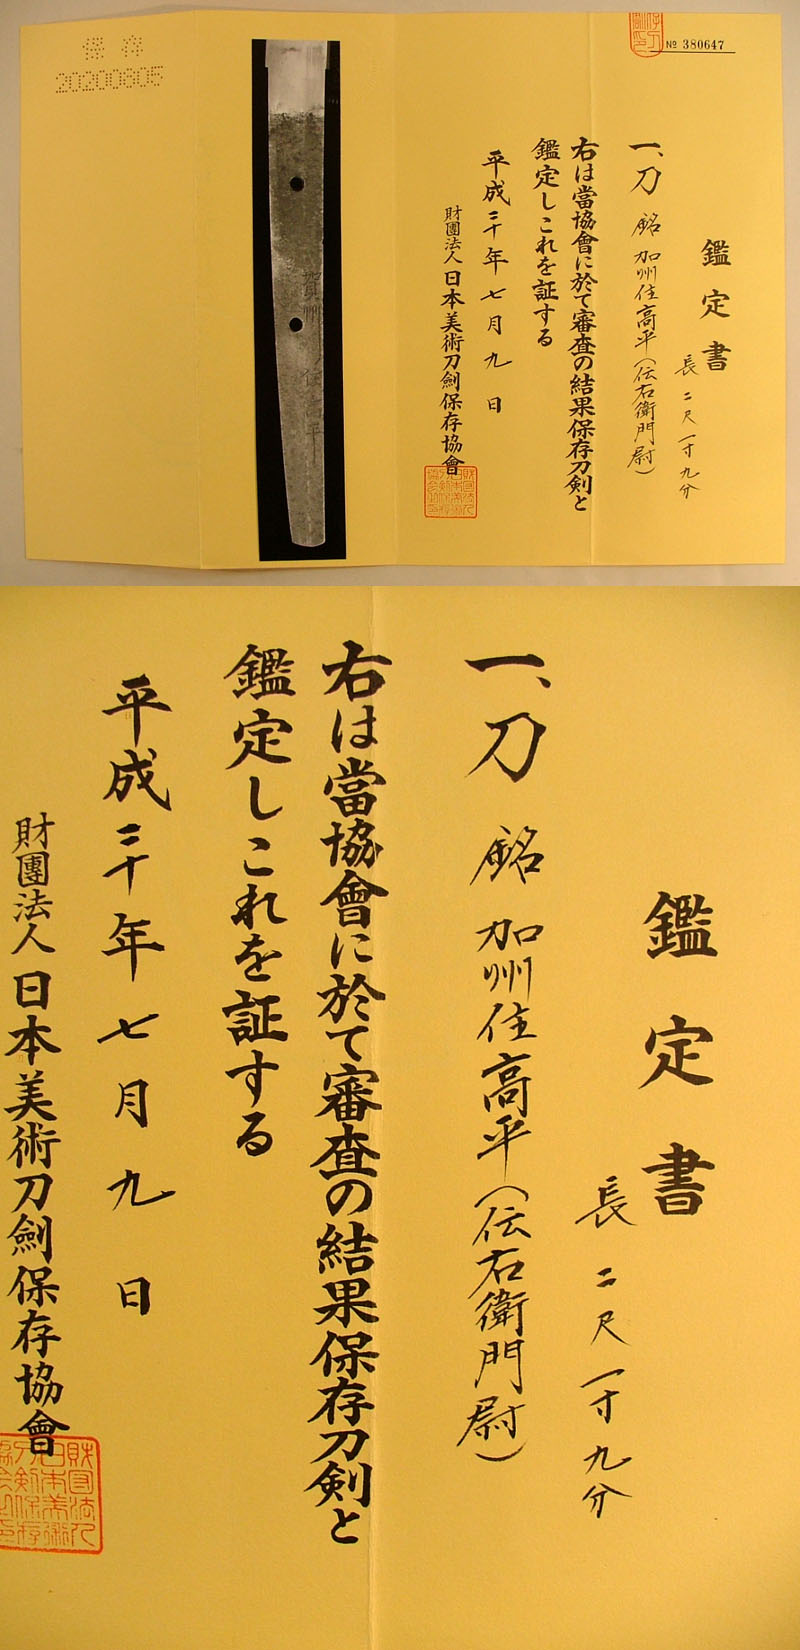 № 380647
鑑定書
長 二尺一寸九分
一、刀 銘 加州住高平（伝右衛門尉）
右は當協會に於て審査の結果保存刀剣と
鑑定しこれを証する
平成二十年七月九日
財團法人 日本美術刀劍保存協會
賀州住高平
保存
鑑定書
長 二尺一寸九分
一、刀 銘 加州住高平（伝右衛門尉）
右は當協會に於て審査の結果保存刀剣と
鑑定しこれを証する
平成二十年七月九日
財團法人 日本美術刀劍保存協會